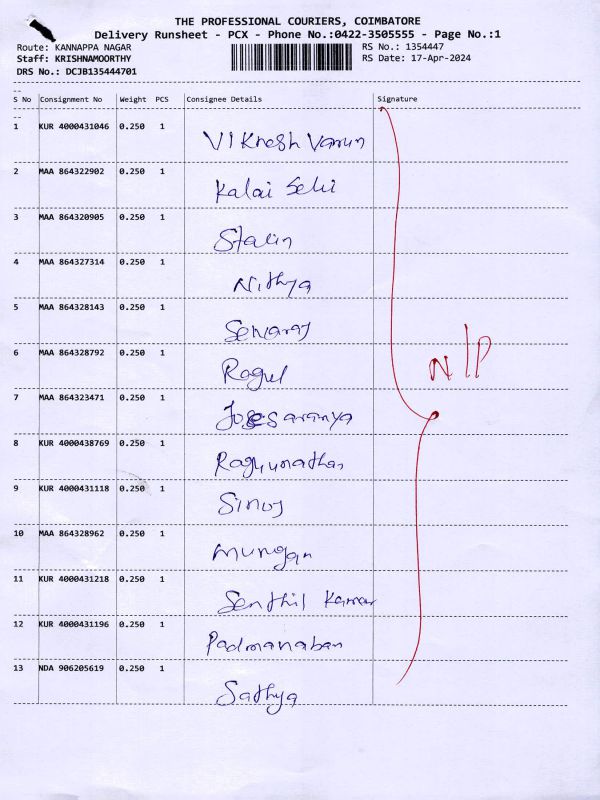 THE PROFESSIONAL COURIERS, COIMBATORE
Delivery Runsheet - PCX - Phone No.:0422-3505555 - Page No.:1
Route: KANNAPPA NAGAR RS No.: 1354447
Staff: KRISHNAMOORTHY RS Date: 17-Apr-2024
DRS No.: DCJB135444701
S No Consignment No Weight PCS Consignee Details Signature
1 KUR 4000431046 0.250 1 VIKnesh Varun
2 MAA 864322902 0.250 1 Kalai Selvi
3 MAA 864320905 0.250 1 Stalin
4 MAA 864327314 0.250 1 Nithya
5 MAA 864328143 0.250 1 Selvaraj
6 MAA 864328792 0.250 1 Ragul
N/P
7 MAA 864323471 0.250 1
8 KUR 4000438769 0.250 1 Raghunathan
9 KUR 4000431118 0.250 1 Sinoj
10 MAA 864328962 0.250 1 Murugan
11 KUR 4000431218 0.250 1 Senthil Kumar
12 KUR 4000431196 0.250 1 Padmanaban
13 NDA 906205619 0.250 1 Sathya